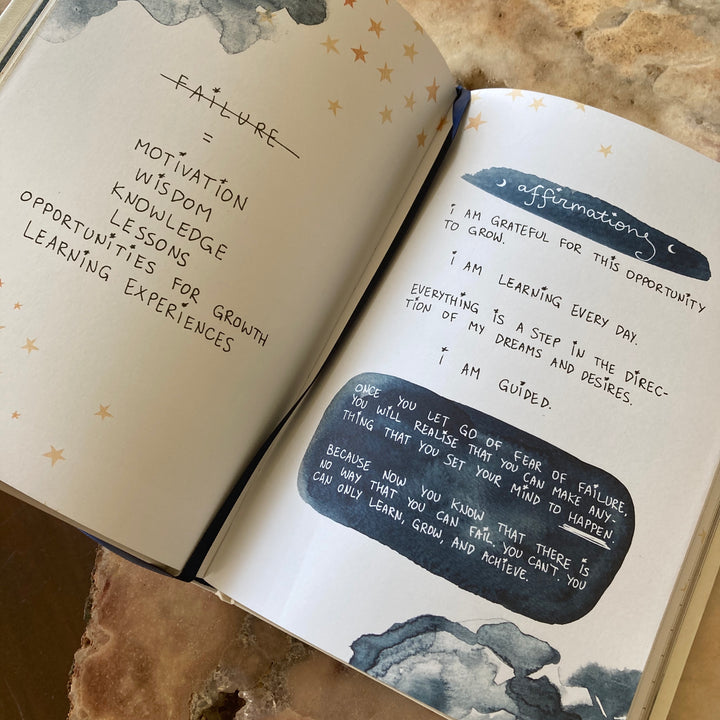 FAiLURE
=
MOTiVATiON
WiSDOM
KNOWLEDGE
LESSONS
OPPORTUNiTiES FOR GROWTH
LEARNiNG EXPERiENCES
affirmations
i AM GRATEFUL FOR THiS OPPORTUNiTY
TO GROW.
i AM LEARNiNG EVERY DAY.
EVERYTHiNG iS A STEP iN THE DiREC-
TiON OF MY DREAMS AND DESiRES.
i AM GUiDED.
ONCE YOU LET GO OF FEAR OF FAiLURE,
YOU WiLL REALiSE THAT YOU CAN MAKE ANY-
THiNG THAT YOU SET YOUR MiND TO HAPPEN.
BECAUSE NOW YOU KNOW THAT THERE iS
NO WAY THAT YOU CAN FAiL. YOU CAN'T. YOU
CAN ONLY LEARN, GROW, AND ACHiEVE.